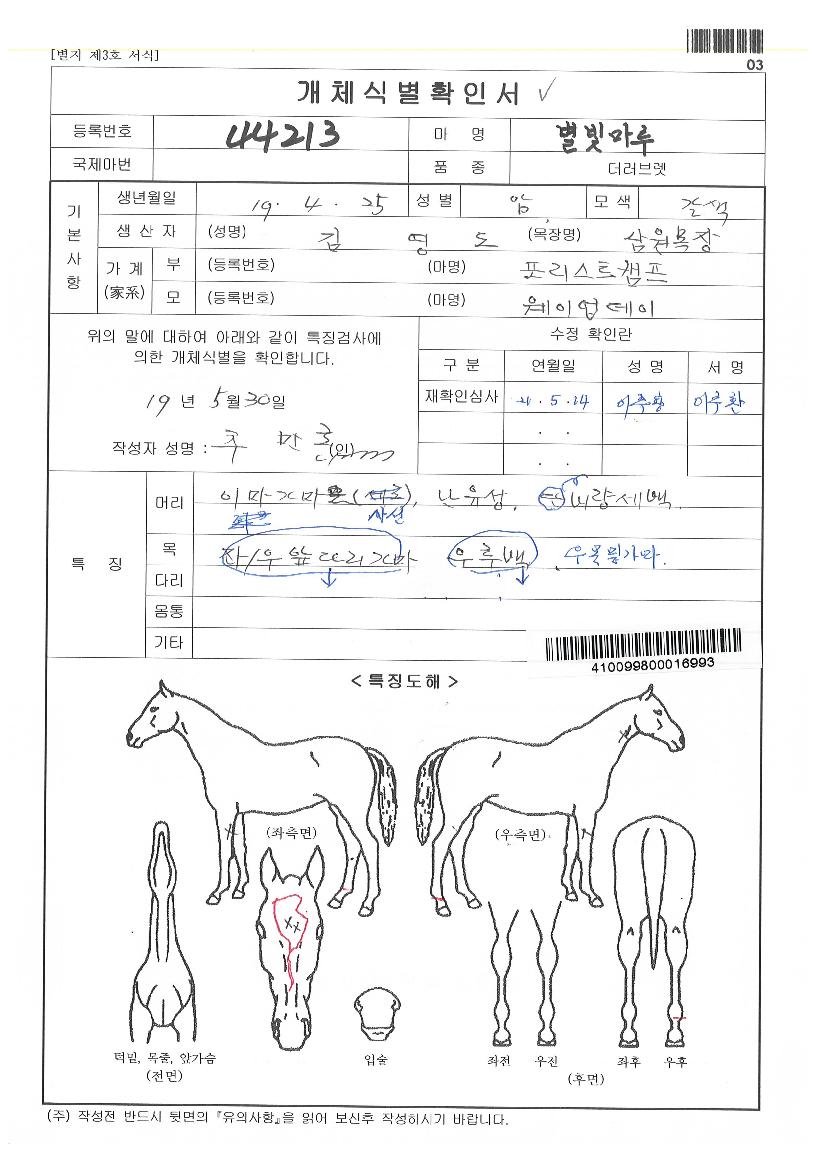 [별지 제3호 서식]
03
개체식별확인서 ✓
등록번호 44213 마 명 별빛마루
국제마번 품 종 더러브렛
기본사항
생년월일 19. 4. 25 성별 암 모색 갈색
생산자 (성명) 김영도 (목장명) 삼원목장
가계(家系) 부 (등록번호) (마명) 포리스트캠프
모 (등록번호) (마명) 웨이업데이
위의 말에 대하여 아래와 같이 특징검사에
의한 개체식별을 확인합니다.
19년 5월 30일
작성자 성명 : (인)
수정 확인란
구 분 연월일 성 명 서 명
재확인심사 21. 5. 14
특 징
머리 이마가마 사선 난유성. 비량세백.
목 좌/우 앞다리가마 우후백 우목밑가마.
다리
몸통
기타
410099800016993
< 특징도해 >
(좌측면) (우측면)
턱밑, 목줄, 앞가슴
(전면)
입술
좌전 우전 좌후 우후
(후면)
(주) 작성전 반드시 뒷면의 『유의사항』을 읽어 보신후 작성하시기 바랍니다.